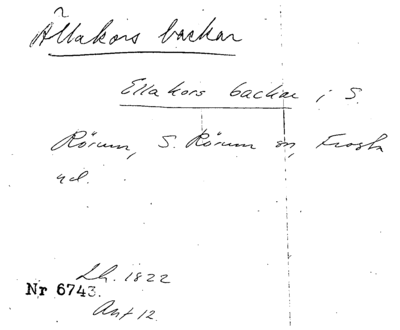 Ällakors backar
Ellakors backar i S.
Rörum, S. Rörum sn, Frosta
hd.
Lh. 1822
Nr 6743.
Ant 12.